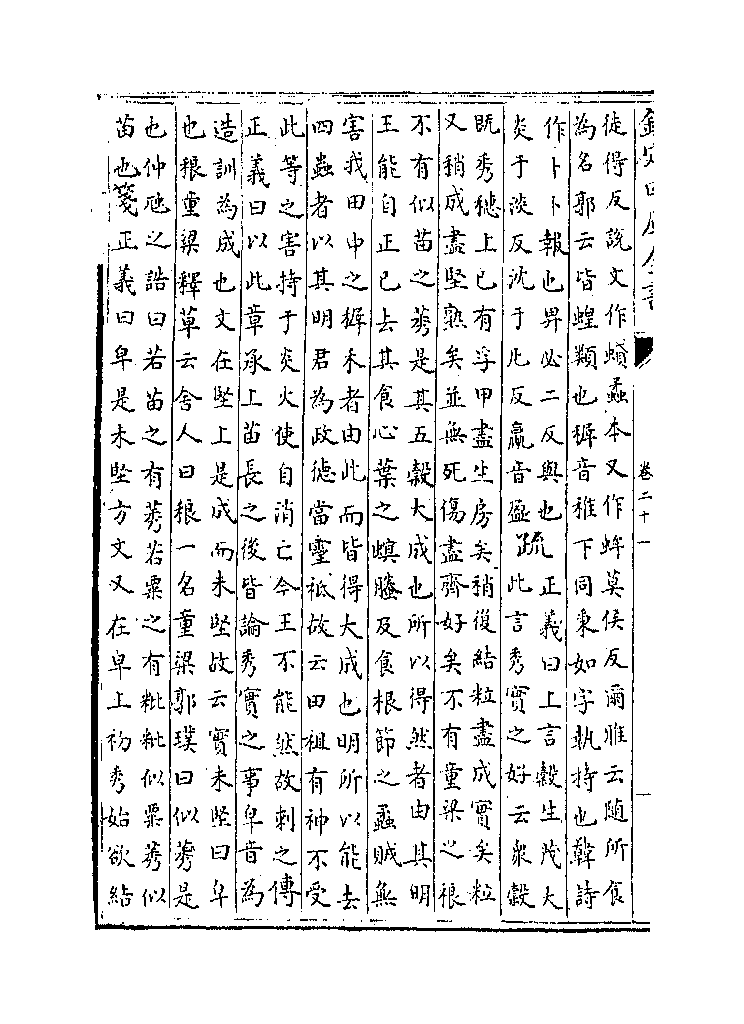 欽定四庫全書
卷二十一
徒得反說文作蟘蟊本又作蛑莫侯反爾雅云隨所食
為名郭云皆蝗類也穉音稚下同秉如字執持也韓詩
作卜卜報也畀必二反與也
炎于淡反沈于凡反羸音盈
疏
正義曰上言穀生茂大
此言秀實之好云衆穀
既秀穂上已有孚甲盡生房矣稍復結粒盡成實矣粒
又稍成盡堅熟矣並無死傷盡齊好矣不有童梁之稂
不有似苗之莠是其五穀大成也所以得然者由其明
王能自正已去其食心葉之螟螣及食根節之蟊賊無
害我田中之穉禾者由此而皆得大成也明所以能去
四蟲者以其明君為政徳當靈祇故云田祖有神不受
此等之害持于炎火使自消亡今王不能然故刺之傳
正義曰以此章承上苗長之後皆論秀實之事皁音為
造訓為成也文在堅上是成而未堅故云實未堅曰皁
也稂童粱釋草云舍人曰稂一名童粱郭璞曰似莠是
也仲虺之誥曰若苗之有莠若粟之有粃粃似粟莠似
苗也箋正義曰皁是未堅方文又在皁上初秀始欲結